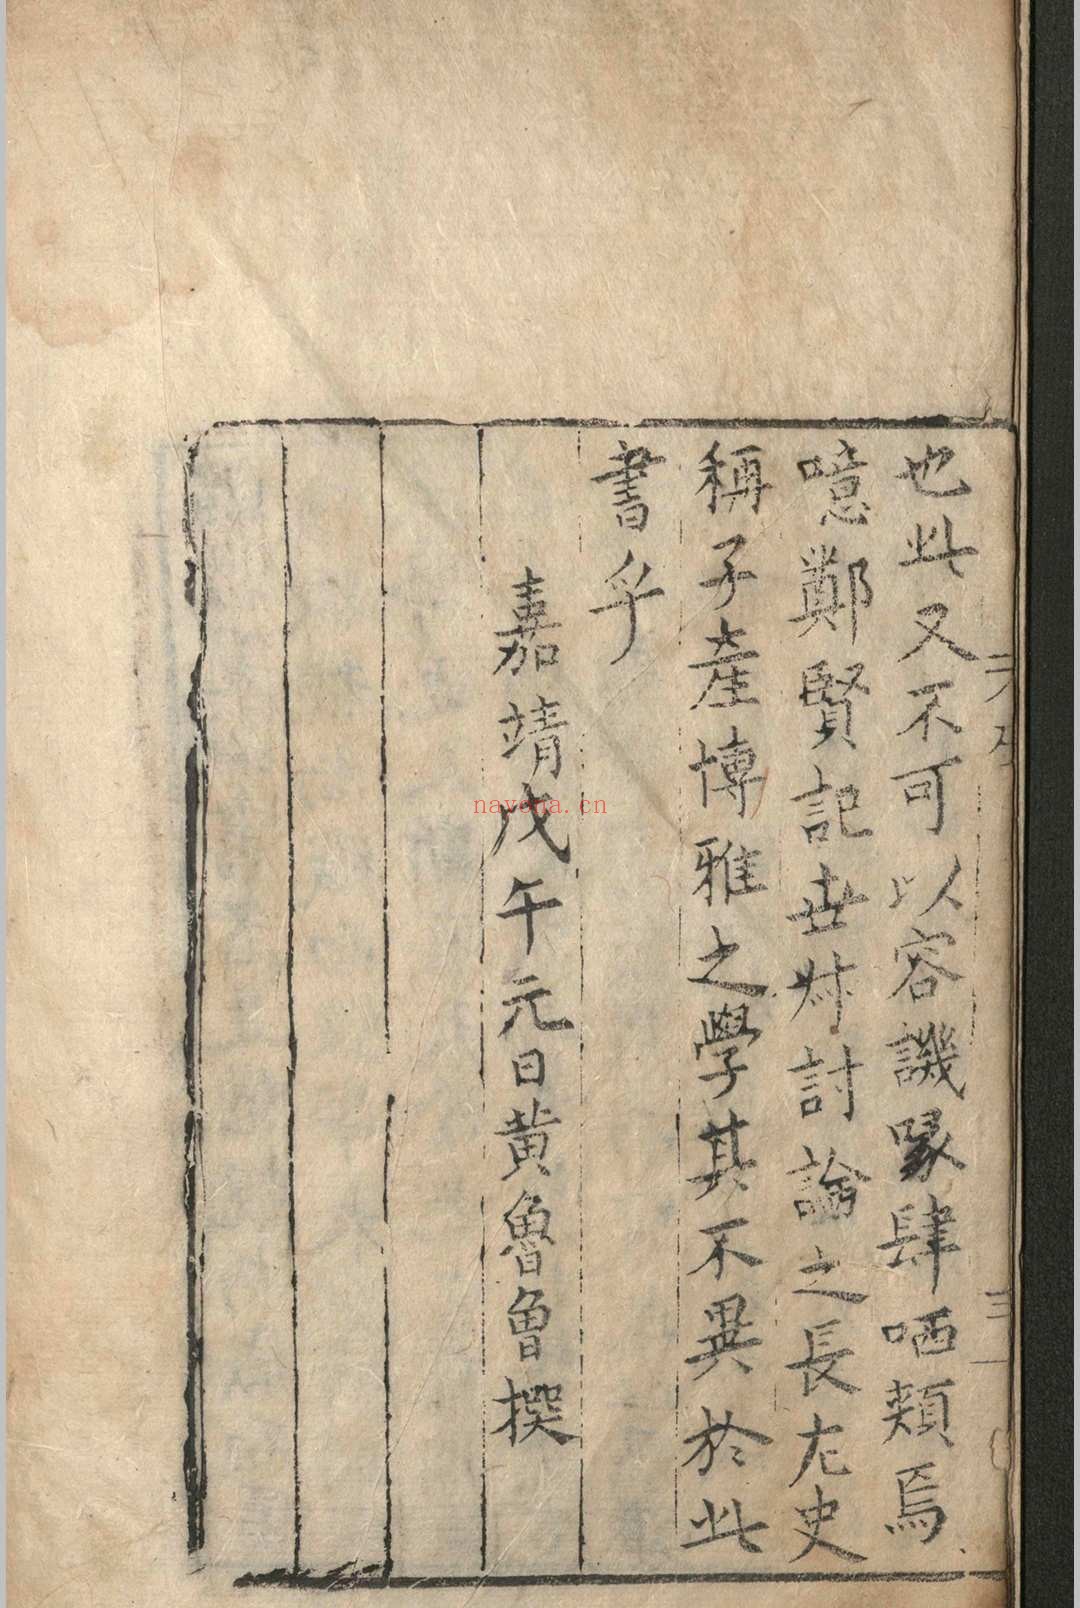 也此又不可以容譏喙肆哂頬焉
噫鄭賢記世叔討論之長左史
稱子產博雅之學其不異於此
書乎
嘉靖戊午元日黄魯曾撰
nayona.cn